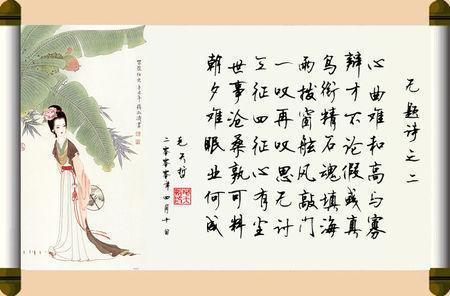 无题诗之二
心曲难和高与寡
辩才不论假或真
鸟衔精石魂填海
雨拔窗舷风敲门
一叹再叹思无计
三征四征心有尘
世事沧桑孰可料
朝夕难眠业何成
年四月十日